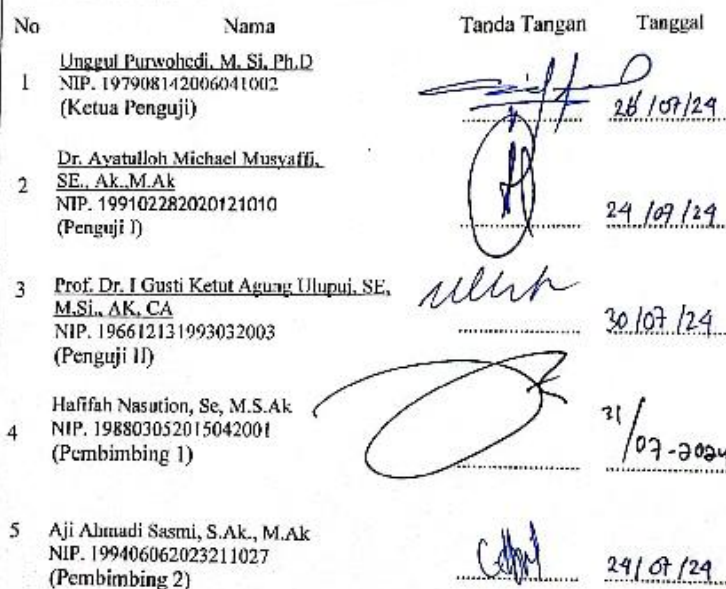 No Nama Tanda Tangan Tanggal
1 Unggul Purwohedi, M. Si, Ph.D
NIP. 197908142006041002
(Ketua Penguji)
26/07/24
2 Dr. Ayatulloh Michael Musyaffi,
SE., Ak.,M.Ak
NIP. 199102282020121010
(Penguji I)
24/07/24
3 Prof. Dr. I Gusti Ketut Agung Ulupui, SE,
M.Si., AK, CA
NIP. 196612131993032003
(Penguji II)
30/07/24
4 Hafifah Nasution, Se, M.S.Ak
NIP. 198803052015042001
(Pembimbing 1)
31/07-2024
5 Aji Ahmadi Sasmi, S.Ak., M.Ak
NIP. 199406062023211027
(Pembimbing 2)
24/07/24